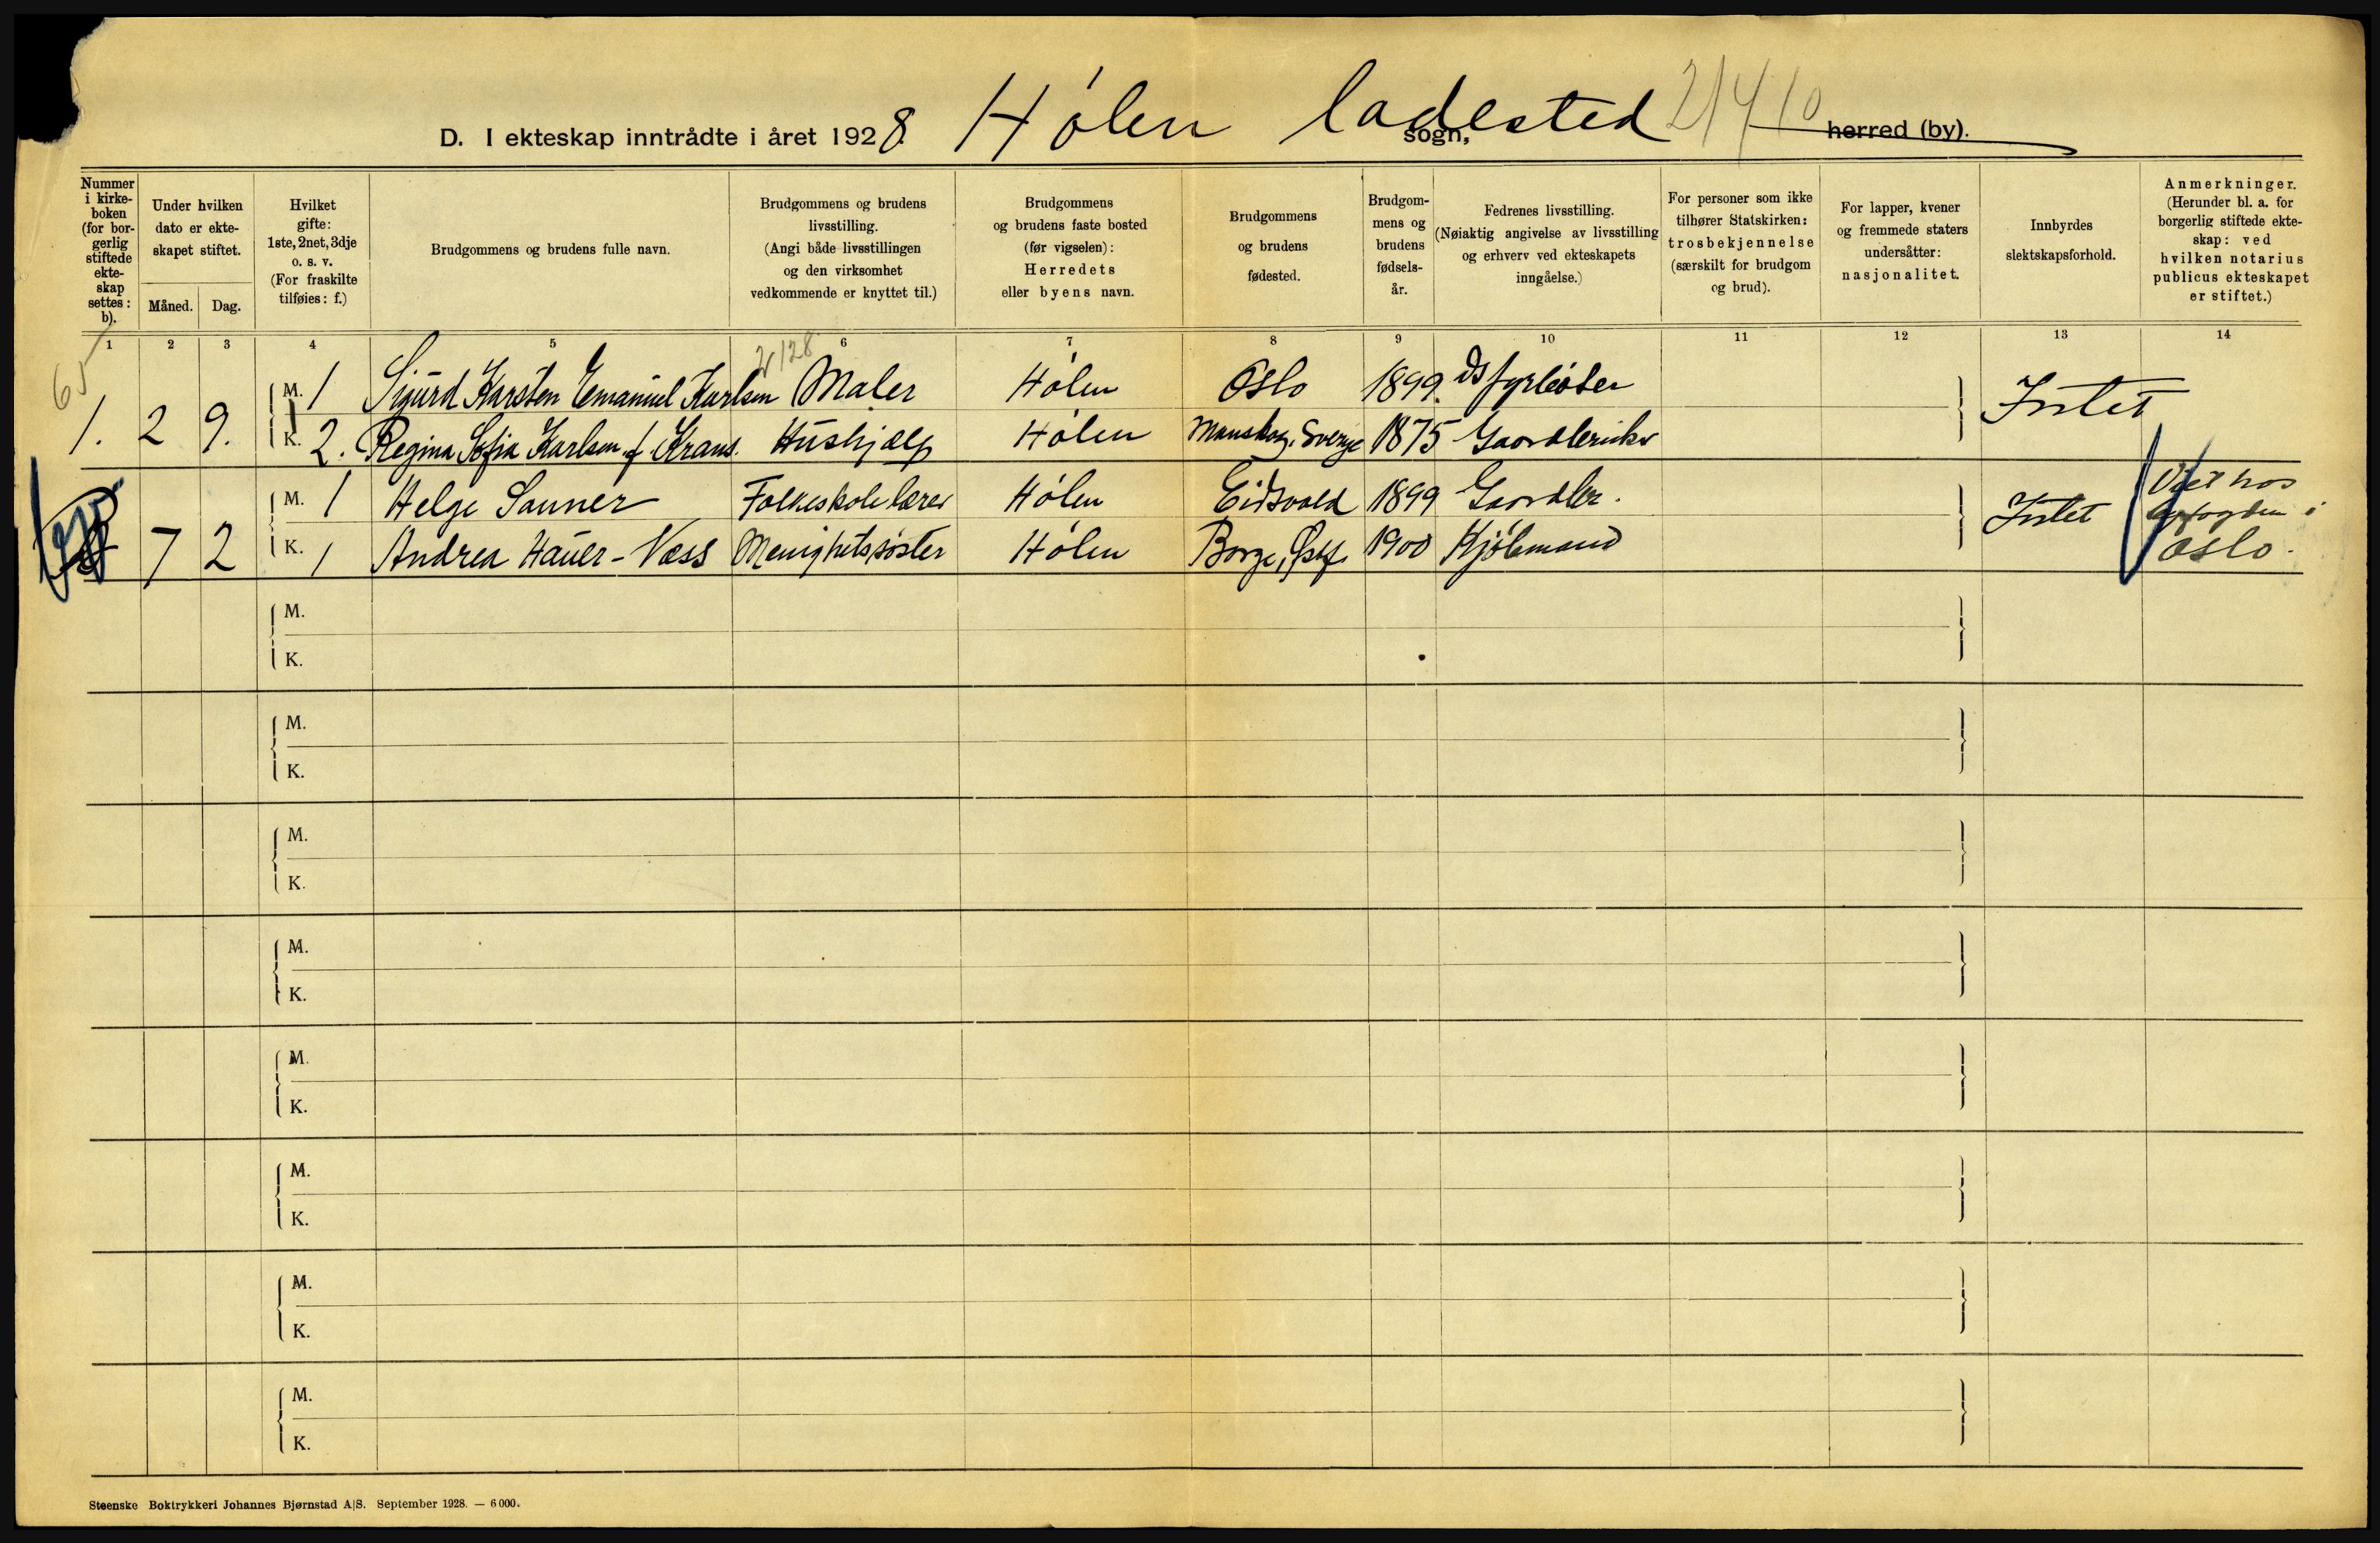 D. I ekteskap inntrådte i året 1928. Hølen ladested sogn, herred (by).
Nummer i kirke-boken (for bor-gerlig stiftede ekte-skap settes: b).
Under hvilken dato er ekte-skapet stiftet.
Måned. Dag.
Hvilket gifte: 1ste, 2net, 3dje o. s. v. (For fraskilte tilføies: f.)
Brudgommens og brudens fulle navn.
Brudgommens og brudens livsstilling. (Angi både livsstillingen og den virksomhet vedkommende er knyttet til.)
Brudgommens og brudens faste bosted (før vigselen): Herredets eller byens navn.
Brudgommens og brudens fødested.
Brudgom-mens og brudens fødsels-år.
Fedrenes livsstilling. (Nøiaktig angivelse av livsstilling og erhverv ved ekteskapets inngåelse.)
For personer som ikke tilhører Statskirken: trosbekjennelse (særskilt for brudgom og brud).
For lapper, kvener og fremmede staters undersåtter: nasjonalitet.
Innbyrdes slektskapsforhold.
Anmerkninger. (Herunder bl. a. for borgerlig stiftede ekte-skap: ved hvilken notarius publicus ekteskapet er stiftet.)
1 2 3 4 5 6 7 8 9 10 11 12 13 14
65
1. 2 9. M. 1 Sigurd Karsten Emanuel Karlsen Maler Hølen Oslo 1899. Intet
K. 2. Regina Sofia Karlsen f. Krans. Hushjælp Hølen Manskog, Sverige 1875
7 2 M. 1 Helge Sanner Folkeskolelærer Hølen Eidsvold 1899 Gaardbr. Intet Viet hos
K. 1 Andrea Hauer-Næss Menighetssøster Hølen Borge, Østf. 1900 Kjøbmand Byfogden i Oslo.
M.
K.
M.
K.
M.
K.
M.
K.
M.
K.
M.
K.
M.
K.
M.
K.
Steenske Boktrykkeri Johannes Bjørnstad A|S. September 1928. — 6000.